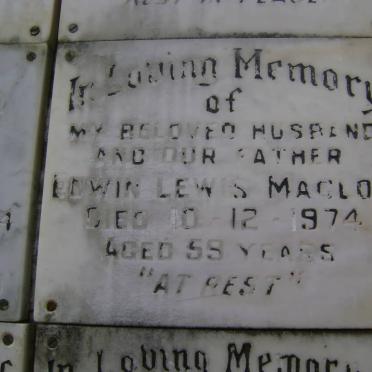 REST IN PEACE
In Loving Memory
of
MY BELOVED HUSBAND
AND OUR FATHER
EDWIN LEWIS
4 DIED 10-12-1974
AGED 59 YEARS
"AT REST"
In Loving Memory